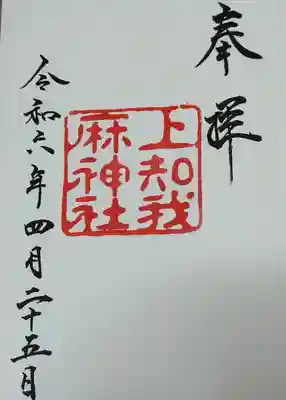 奉拝
上知我
麻神社
令和六年四月二十五日